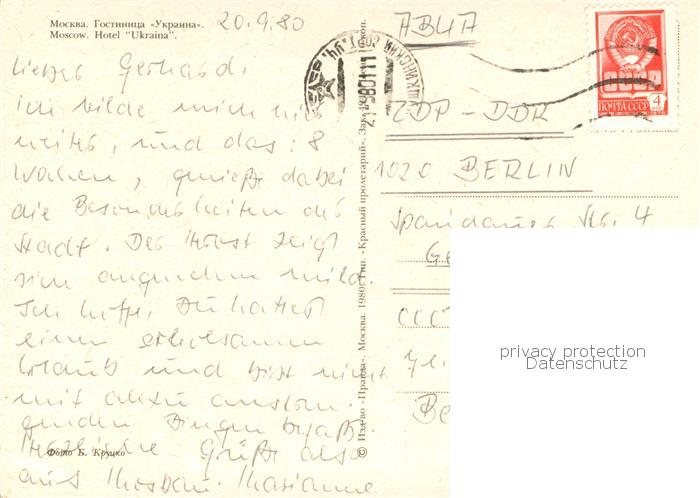 Москва. Гостиница «Украина».
Moscow. Hotel "Ukraina".
20.9.80
Lieber Gerhard,
ich bilde mich hier
weiter, und das: 8
Wochen, genieße dabei
die Besonderheiten der
Stadt. Der Herbst zeigt
sich angenehm mild.
Ich hoffe, Du hattest
einen erholsamen
Urlaub und bist nicht
mit allzu anstren-
genden Dingen befaßt.
Herzliche Grüße also
aus Moskau. Marianne
Фото Б. Круцко
© Изд-во «Правда». Москва. 1980. Тип. «Красный пролетарий».
АВИА
ПОЧТА СССР
4
ДДР - DDR
1020 BERLIN
Spandauer Str. 4
СССР
Be
privacy protection
Datenschutz